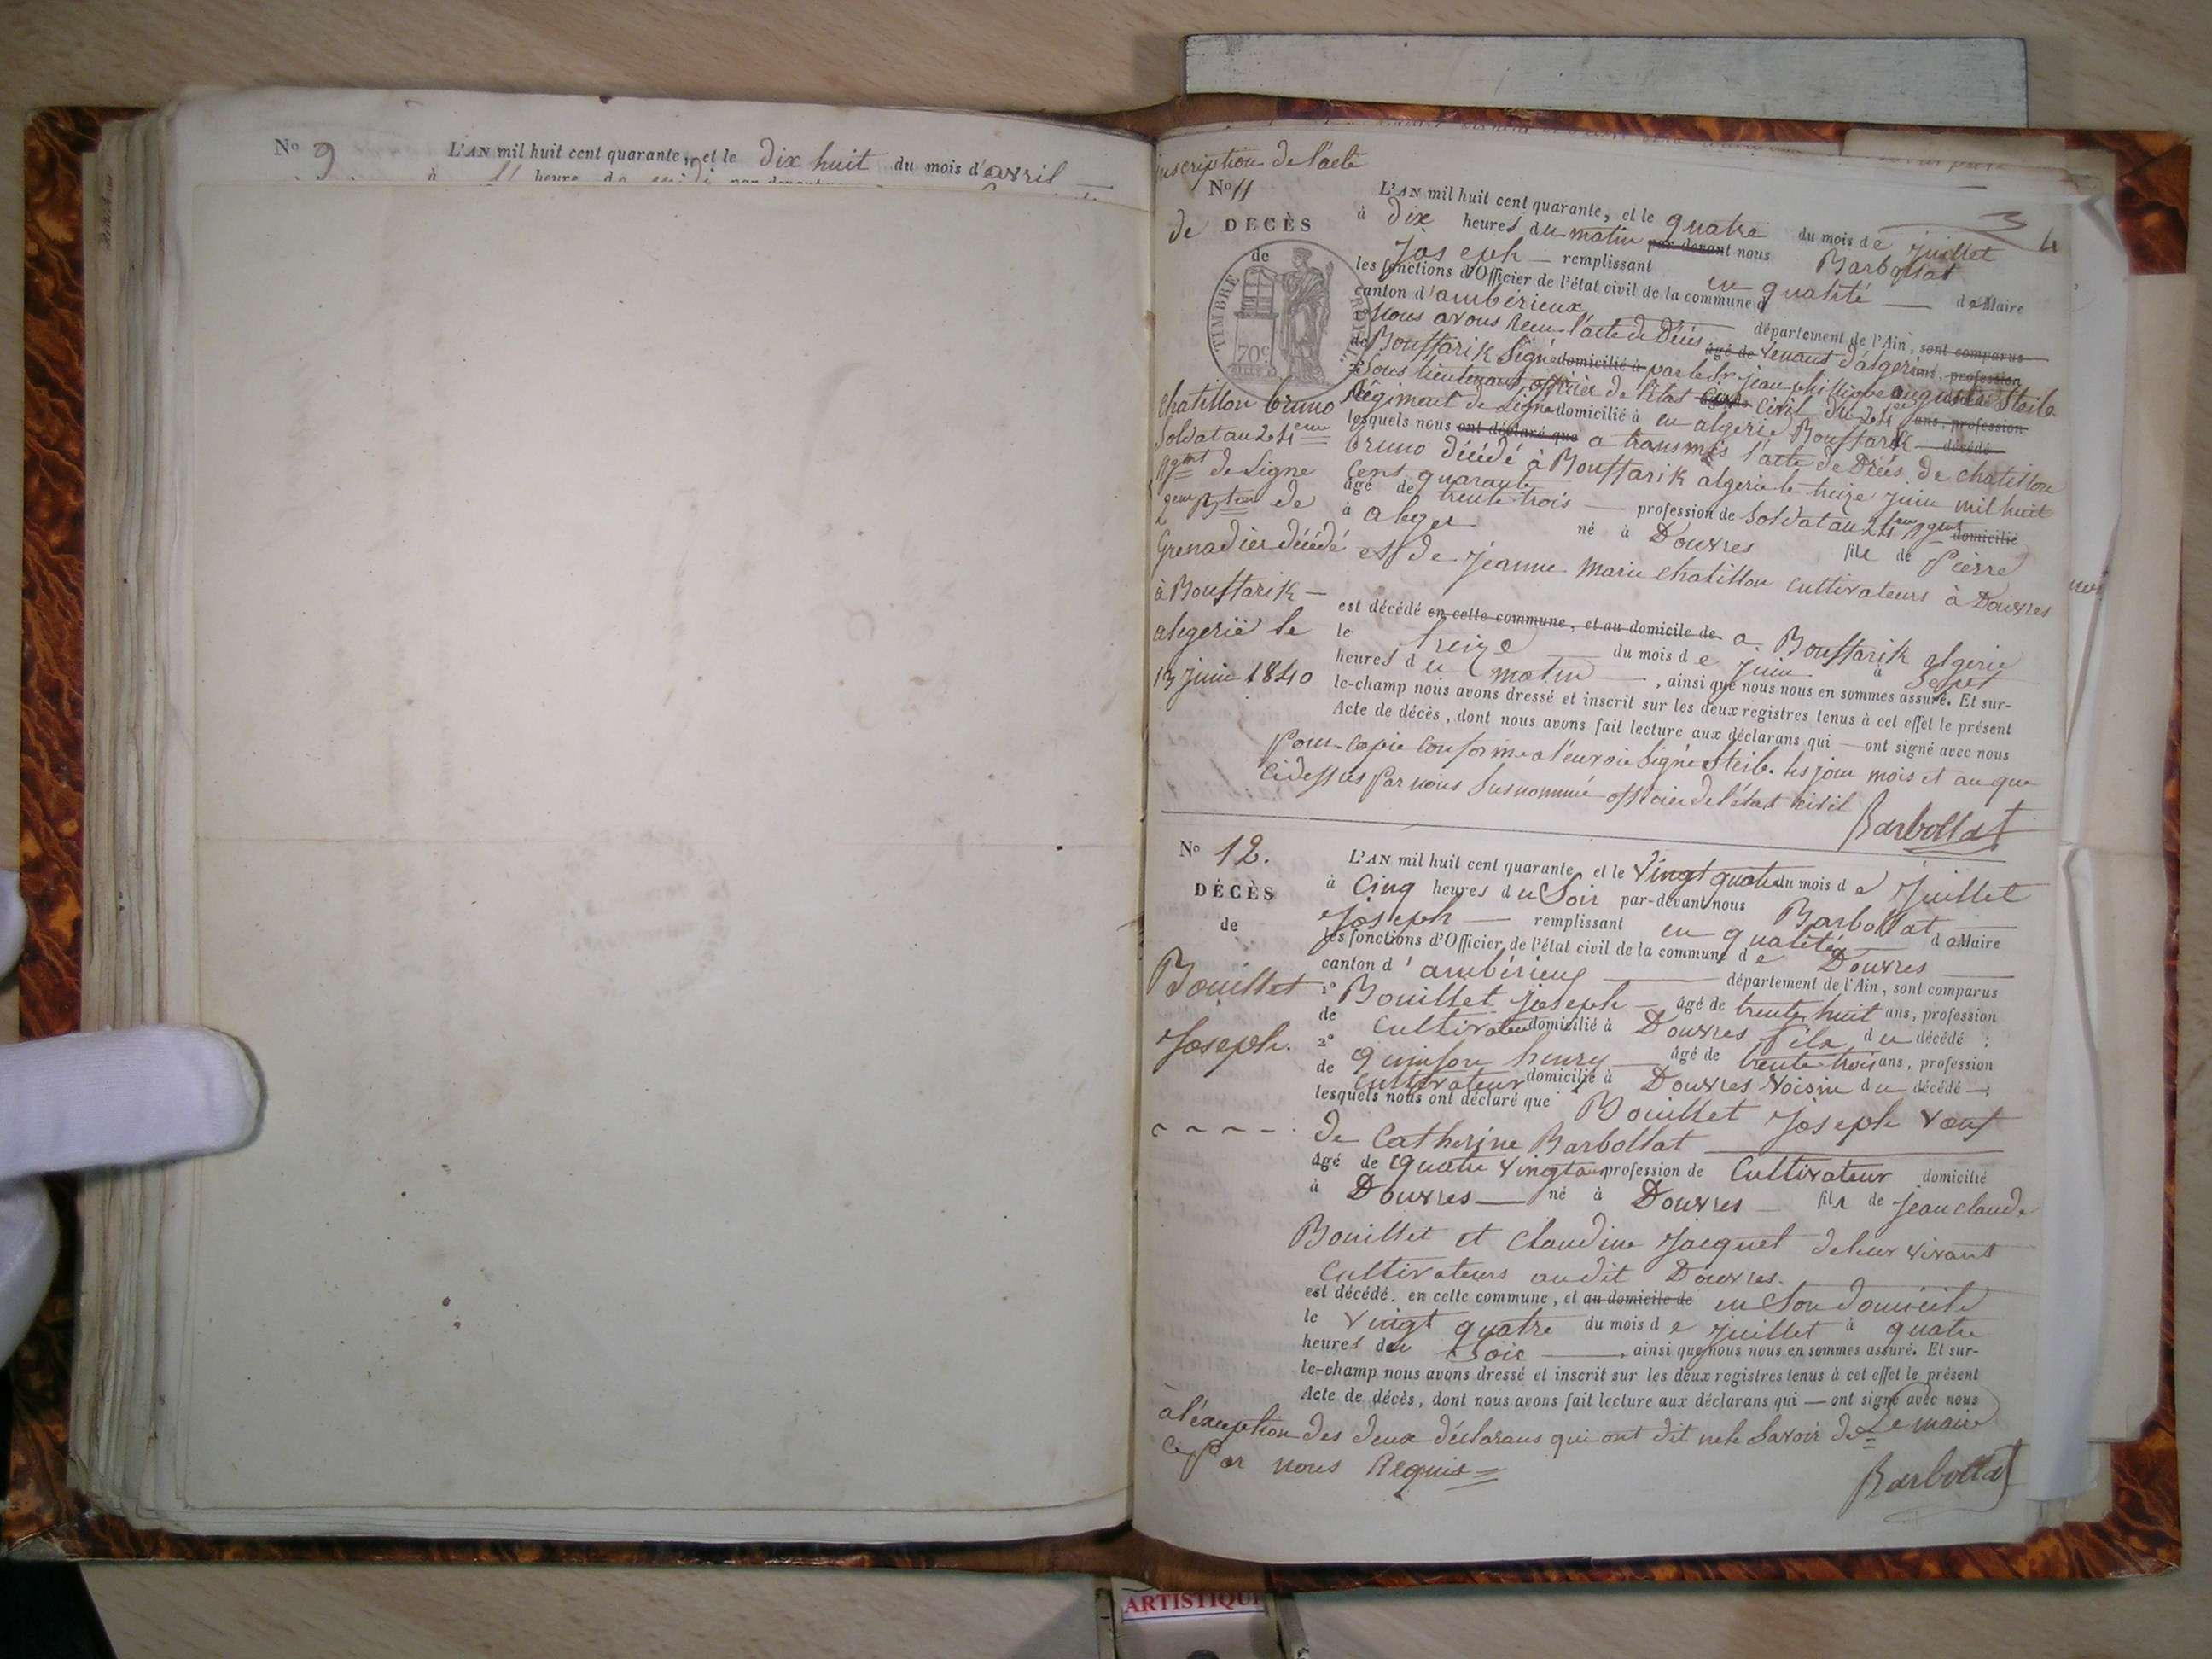 No 9 L'AN mil huit cent quarante, et le dix huit du mois d'avril
inscription de l'acte
No 11
de DECÈS
de
TIMBRE ROYAL
70c
Chatillon Bruno
Soldat au 24eme
Rgmt de Ligne
2eme Bton de
Grenadier décédé
à Bouffarik
algerië le
13 juin 1840
3
4
L'AN mil huit cent quarante, et le quatre du mois de juillet
à dix heures du matin par-devant nous Barbollat
Joseph remplissant en qualité de Maire
les fonctions d'Officier de l'état civil de la commune d
canton d'ambérieux département de l'Ain, sont comparus
nous avons reçu l'acte de Décès âgé de venant d'algerie ans, profession
de Bouffarik Signé domicilié à par le Sr jean philippe auguste Steib
Sous lieutenant officier de l'état civil du 24e ans, profession
Régiment de Ligne domicilié à en algerie Bouffarik décédé
lesquels nous ont déclaré que a transmis l'acte de Décès de Chatillon
Bruno décédé à Bouffarik algerie le treize juin mil huit
Cent quarante
âgé de trente trois profession de Soldat au 24eme Rgmt domicilié
à alger né à Douvres fils de Pierre
et de Jeanne Marie Chatillon Cultivateurs à Douvres
est décédé en cette commune, et au domicile de a Bouffarik algerie
le treize du mois de juin à Sept
heures du matin, ainsi que nous nous en sommes assuré. Et sur-
le-champ nous avons dressé et inscrit sur les deux registres tenus à cet effet le présent
Acte de décès, dont nous avons fait lecture aux déclarans qui — ont signé avec nous
Pour Copie Conforme a l'envoie Signé Steib. les jour mois et an que
Cidessus Par nous Susnommé officier de l'état civil
Barbollat
No 12.
DÉCÈS
de
Bouillet
Joseph.
L'AN mil huit cent quarante et le Vingt quatre du mois de Juillet
à Cinq heures du Soir par-devant nous Barbollat
Joseph remplissant en qualité de Maire
les fonctions d'Officier de l'état civil de la commune de Douvres
canton d'ambérieux département de l'Ain, sont comparus
1o Bouillet Joseph âgé de trente huit ans, profession
de Cultivateur domicilié à Douvres fils du décédé ;
2o Quinson henry âgé de trente trois ans, profession
de Cultivateur domicilié à Douvres Voisin du décédé ;
lesquels nous ont déclaré que Bouillet Joseph Veuf
de Catherine Barbollat
âgé de quatre vingt ans profession de Cultivateur domicilié
à Douvres né à Douvres fils de Jean claude
Bouillet et Claudine Jacquet de leur vivant
Cultivateurs audit Douvres.
est décédé. en cette commune, et au domicile de en Son domicile
le Vingt quatre du mois de Juillet à quatre
heures du Soir, ainsi que nous nous en sommes assuré. Et sur-
le-champ nous avons dressé et inscrit sur les deux registres tenus à cet effet le présent
Acte de décès, dont nous avons fait lecture aux déclarans qui — ont signé avec nous
à l'exception des deux déclarans qui ont dit ne le Savoir de Le maire
Ce Par nous Requis
Barbollat
ARTISTIQUE